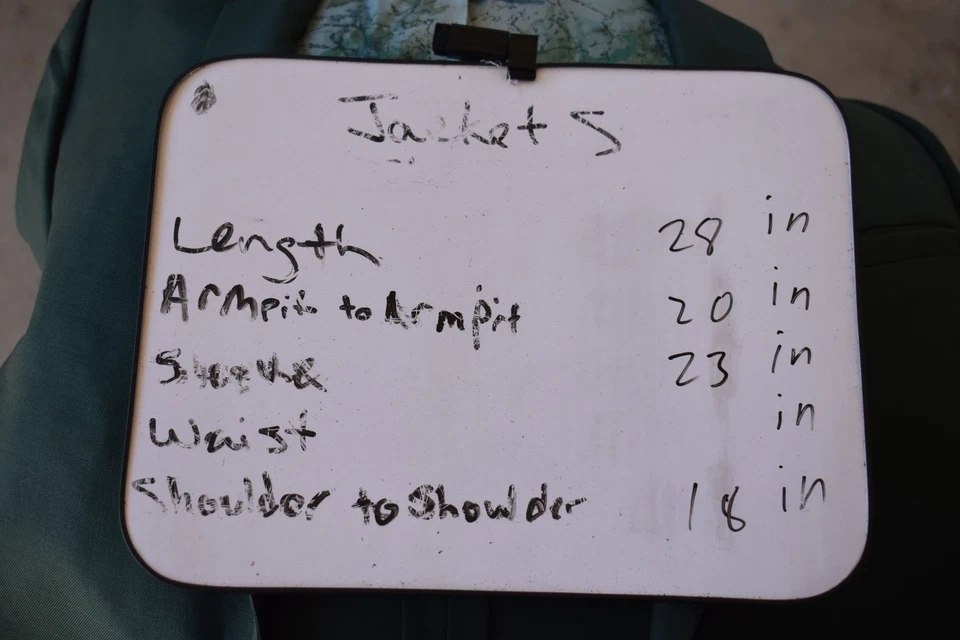 Jacket S
Length 28 in
Armpit to Armpit 20 in
Sleeve 23 in
Waist in
Shoulder to Shoulder 18 in